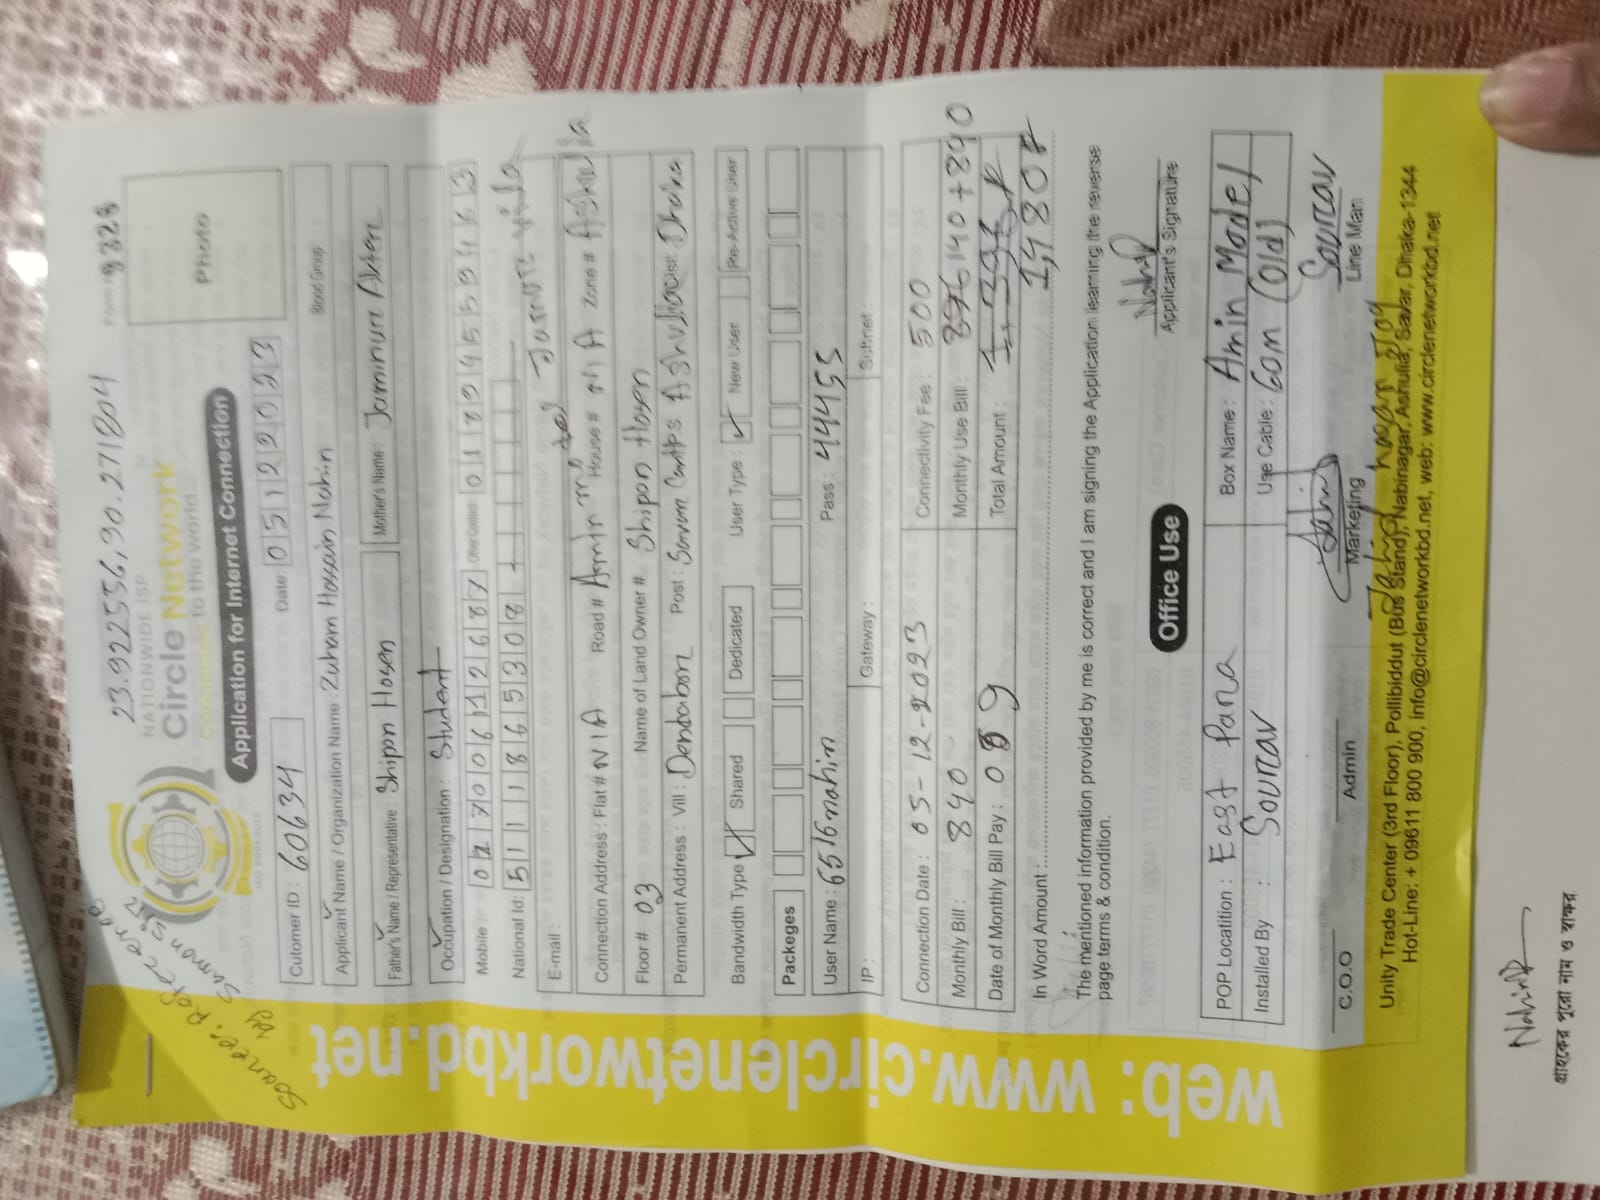 23.922556, 90.271804
Form: 9328
NATIONWIDE ISP
Circle Network
Connected to the World...
Application for Internet Connection
Photo
Cutomer ID : 60634
Date: 05122023
Applicant Name / Organization Name : Zuham Hossain Nahin
Blood Group
Father's Name / Representative : Shipon Hosen
Mother's Name :
Occupation / Designation : Student
Mobile : 01700612687 Other Contact
National Id: 5111865308
E-mail :
Connection Address : Flat # N/A Road # House # N/A Zone # Ashulia
Floor # 03 Name of Land Owner # Shipon Hosen
Permanent Address : Vill : Dendabor Post : Dist : Dhaka
Bandwidth Type Shared Dedicated User Type : New User Re-Active User
Packeges
User Name : 6516nahin Pass : 44455
IP : Gateway : Subnet :
Connection Date : 05-12-2023 Connectivity Fee : 500
Monthly Bill : 840 Monthly Use Bill : 140+840
Date of Monthly Bill Pay : 0 Total Amount :
1,480
In Word Amount :
The mentioned information provided by me is correct and I am signing the Application learning the reverse
page terms & condition.
Applicant's Signature
Office Use
POP Locatition : East Para Box Name : Amin Model
Installed By : Sourav Use Cable : 60m (Old)
Sourav
C.O.O Admin Marketing Line Man
Unity Trade Center (3rd Floor), Pollibiddut (Bus Stand), Nabinagar, Ashulia, Savar, Dhaka-1344
Hot-Line: + 09611 800 900, info@circlenetworkbd.net, web: www.circlenetworkbd.net
web: www.circlenetworkbd.net
গ্রাহকের পুরো নাম ও স্বাক্ষর